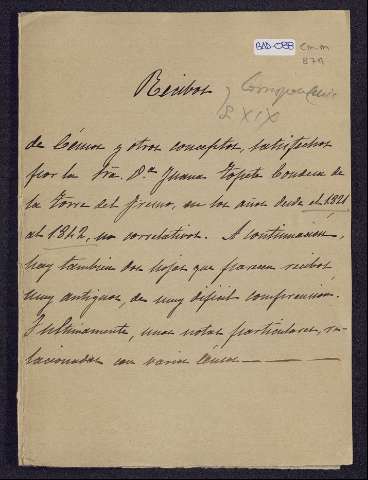 BAD-088
Cm.m
879
Recibos
y Correspondencia
S. XIX
de Censos y otros conceptos, satisfechos
por la Sra. Dª Juana Topete Condesa de
la Torre del Fresno, en los años desde el 1821
al 1842, no correlativos. A continuación,
hay también dos hojas que parecen recibos
muy antiguos, de muy dificil comprension.
Y ultimamente, unas notas particulares, re-
lacionadas con varios Censos